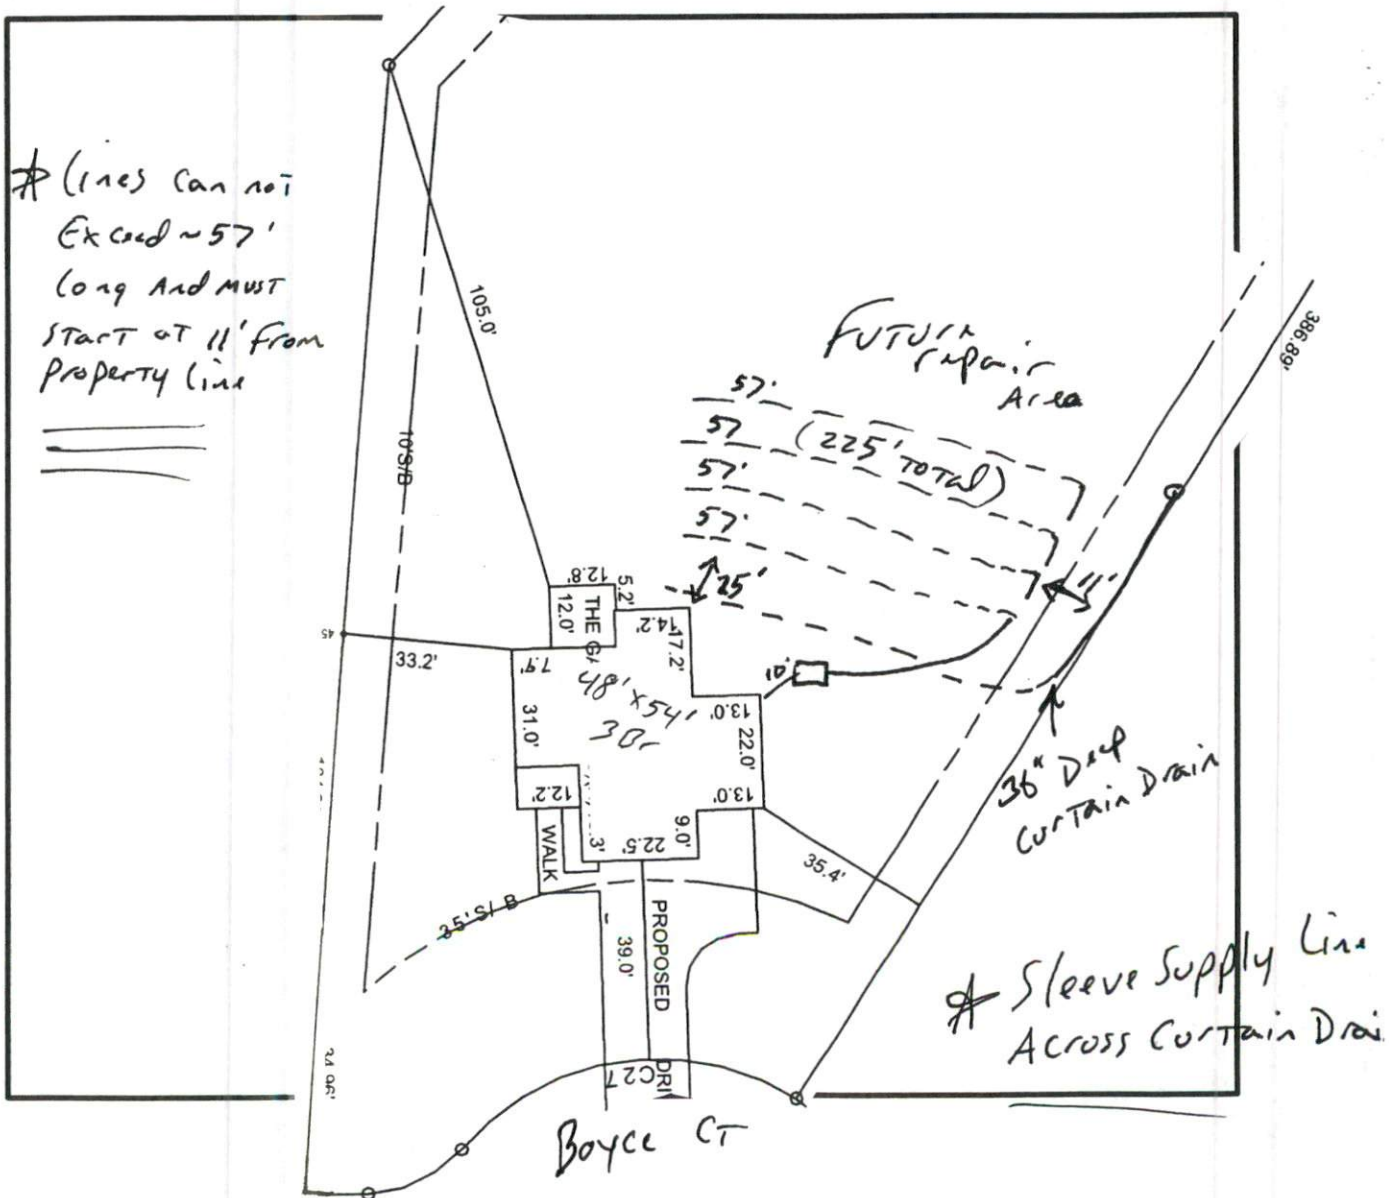 * Lines can not
Exceed ~57'
long And must
start at 11' from
property line
105.0'
10'S/B
Future
repair
Area
386.89'
57'
57
(225' total)
57'
57'
25'
11'
12.8'
5.2'
THE
12.0'
14.2'
17.2'
45
33.2'
7.9'
48' x 54'
3 Br
31.0'
10'
13.0'
22.0'
13.0'
12.2'
9.0'
22.5'
WALK
35.4'
36" Deep
Curtain Drain
35' S/ B
PROPOSED
39.0'
DRI
C27
34.96'
* Sleeve Supply Line
Across Curtain Drai
Boyce CT